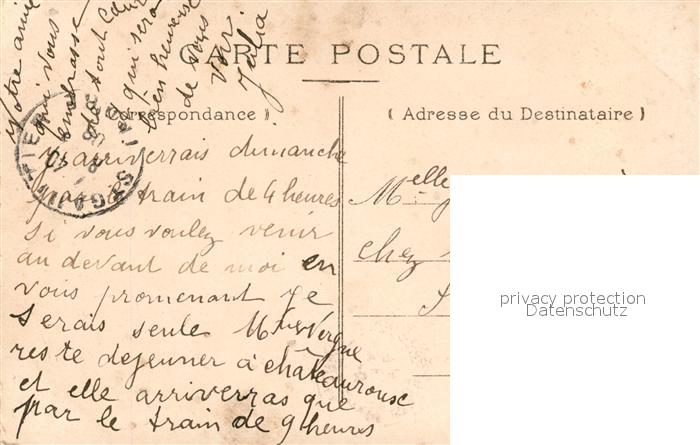 CARTE POSTALE
( Correspondance )
( Adresse du Destinataire )
arriverrais dimanche
par le train de 4 heures
si vous voulez venir
au devant de moi en
vous promenant Je
serais seule Mme Vergne
reste dejeuner à chateauroux
et elle arriverras que
par le train de 9 heures
Votre amie
qui vous
embrasse
de tout cœur
et qui sera
bien heureuse
de vous
voir
Julia
Melle
chez
privacy protection
Datenschutz